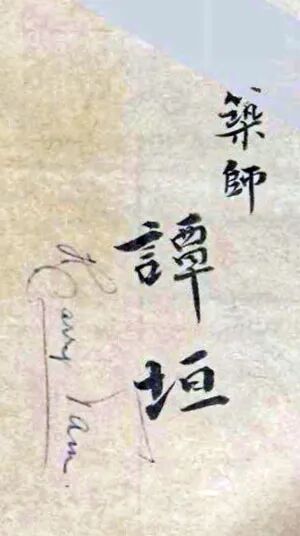 築師
譚垣
Harry Tam.